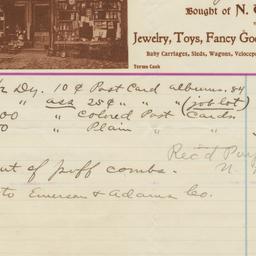 Bought of N.
Jewelry, Toys, Fancy Goo
Baby Carriages, Sleds, Wagons, Velocep
Terms Cash
1/2 Dz. 10¢ Post Card albums. 84
" ass 25¢ " " (job lot)
00 " colored Post Cards
0 " Plain " "
Rec'd Pay
ut of puff combs. N.
to Emerson & Adams Co.